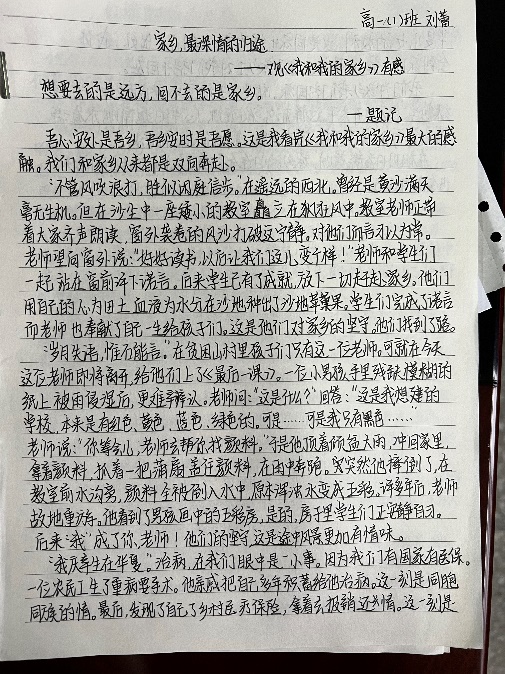 高一(1)班 刘蕾
家乡,最深情的归途
——观《我和我的家乡》有感
想要去的是远方,回不去的是家乡。
—题记
吾心安处是吾乡,吾乡安时是吾愿。这是我看完《我和我的家乡》最大的感
触。我们和家乡从来都是双向奔赴。
“不管风吹浪打,胜似闲庭信步。”在遥远的西北,曾经是黄沙满天
毫无生机。但在沙尘中一座矮小的教室矗立在狂风中,教室老师正带
着大家齐声朗读,窗外袭卷的风沙打破这宁静。对他们而言习以为常。
老师望向窗外说:“好好读书,以后让我们这儿变个样!”老师和学生们
一起站在窗前许下诺言。后来学生已有了成就,放下一切赶赴家乡。他们
用自己的心为田土血液为水分在沙地种出了沙地苹果。学生们完成了诺言
而老师也奉献了自己一生给孩子们。这是他们对家乡的坚守,他们找到了路。
“岁月失语,惟石能言。”在贫困山村里孩子们只有这一位老师。可就在今天
这位老师即将离开,给他们上了《最后一课》。一位小男孩手里残缺模糊的
纸上被雨侵湿后,更难易辨认。老师问:“这是什么?”回答:“这是我想建的
学校,本来是有红色、黄色、蓝色、绿色的。可是……可是我只有黑色……”
老师说:“你等会儿,老师去帮你找颜料。”于是他顶着倾盆大雨,冲回家里,
拿着颜料,扒着一把蒲扇盖住颜料,在雨中奔跑。突突然他摔倒了,在
教室前水沟旁,颜料全被倒入水中,原本浑浊水变成五彩。许多年后,老师
故地重游。他看到了男孩画中的五彩房,是的,房子里学生们正安静自习。
后来“我”成了你,老师!他们的坚守,这是途中风景更加有情味。
“我反寿生在华夏。”治病,在我们眼中是一小事。因为我们有国家有医保。
一位农民工生了重病要手术。他亲戚把自己多年积蓄给他治病。这一刻是同胞
同庚的情。最后,发现了自己了乡村医疗保险,拿着去报销还大情。这一刻是